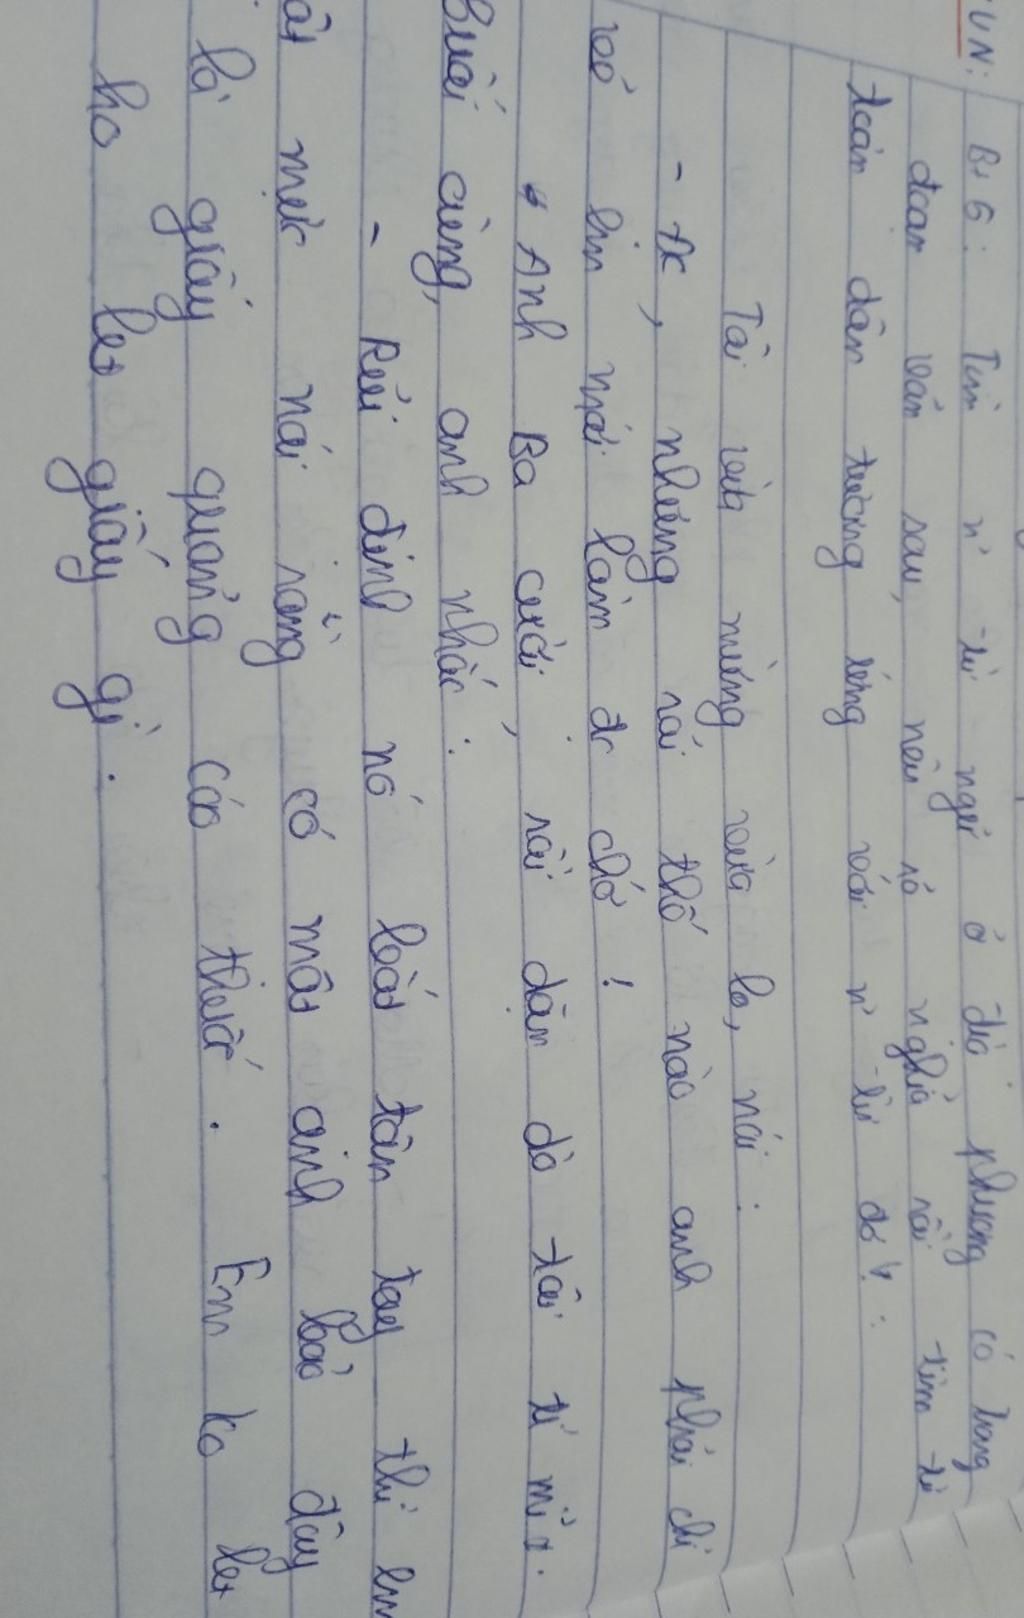 UN:
Bt 6: Tìm n' từ ngữ ở địa phương có trong
đoạn văn sau, nêu rõ nghĩa rồi tìm từ
toàn dân tương ứng với n' từ đó:
Tôi vừa mừng vừa lo, nói:
- Đc, nhưng rải thế nào anh phải chỉ
vẽ, em mới làm đc chớ!
Anh Ba cười, rồi dặn dò tôi tỉ mỉ.
Cuối cùng, anh nhắc:
- Rủi định nó bắt tận tay thì em
một mực nói rằng có một anh bảo đây
là giấy quảng cáo thuốc. Em ko bt
chữ nên ko bt giấy gì.